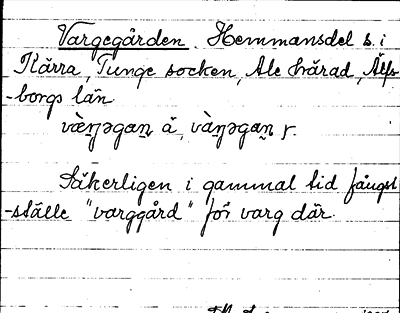 Vargegården Hemmansdel s. i
Kärra, Tunge socken, Ale härad, Älfs-
-borgs län
væ̀ŋəgan̥ ä, vàŋəgan̥ y.
Säkerligen i gammal tid fångst
-ställe "varggård" för varg där.